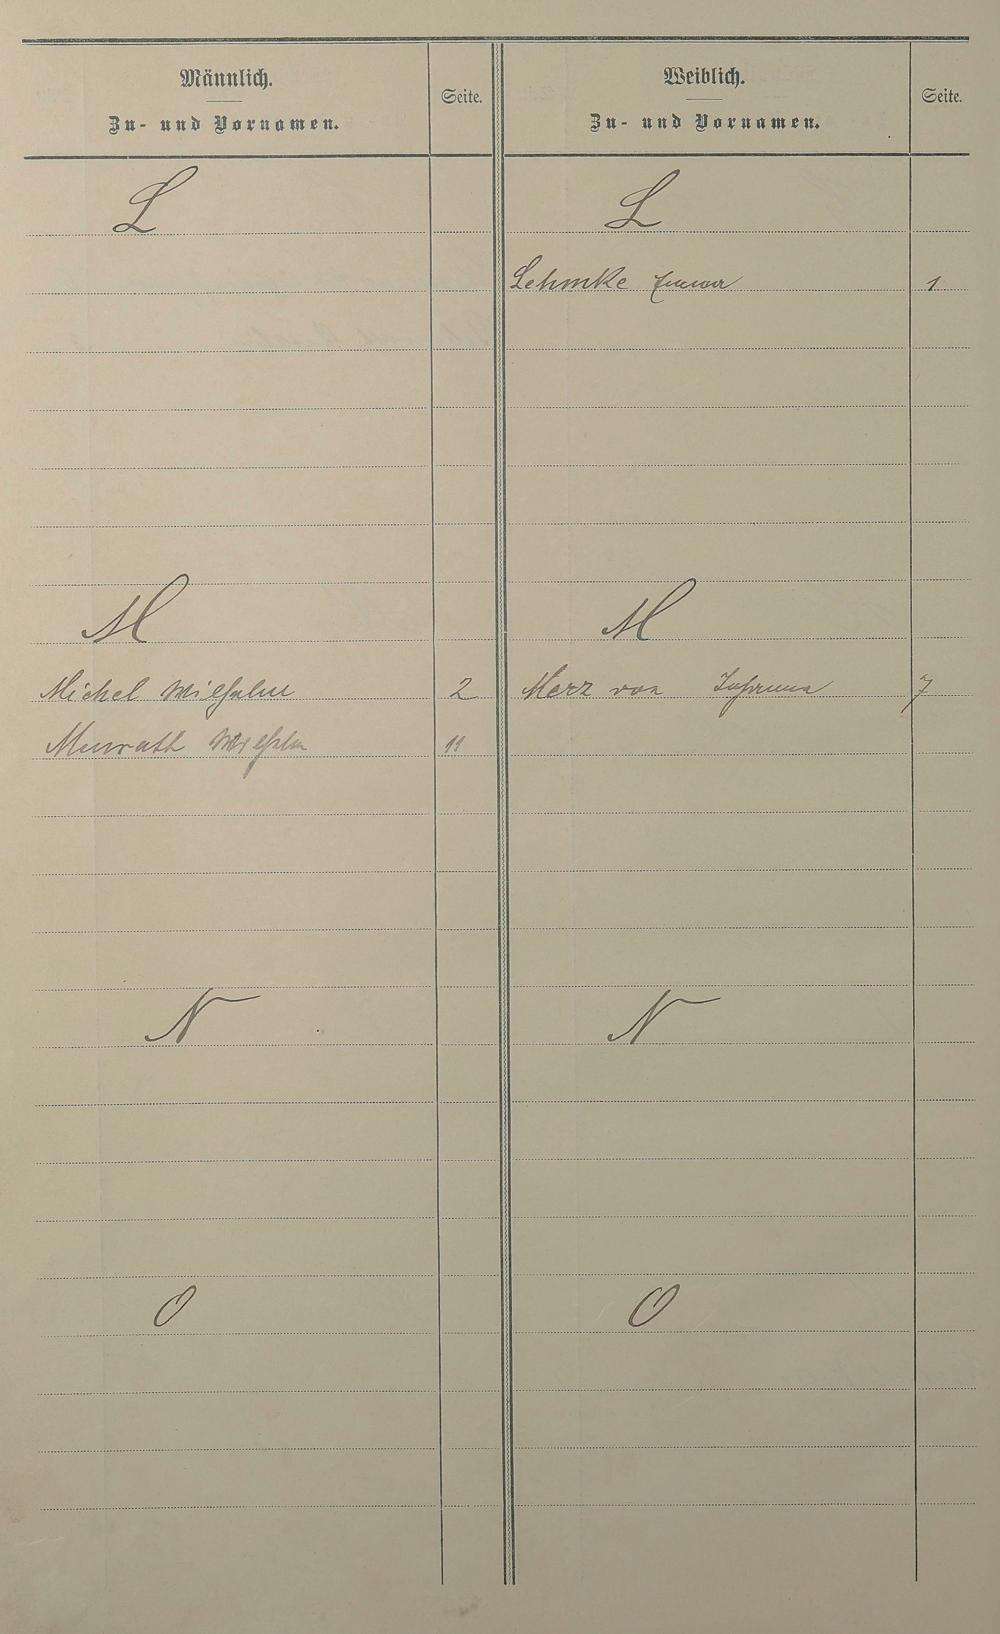 Männlich.
Zu- und Vornamen.
Seite.
L
M
Michel Wilhelm 2
Menrath Wilhelm 11
N
O
Weiblich.
Zu- und Vornamen.
Seite.
L
Lehmke Emma 1
M
Merz von Johanna 7
N
O